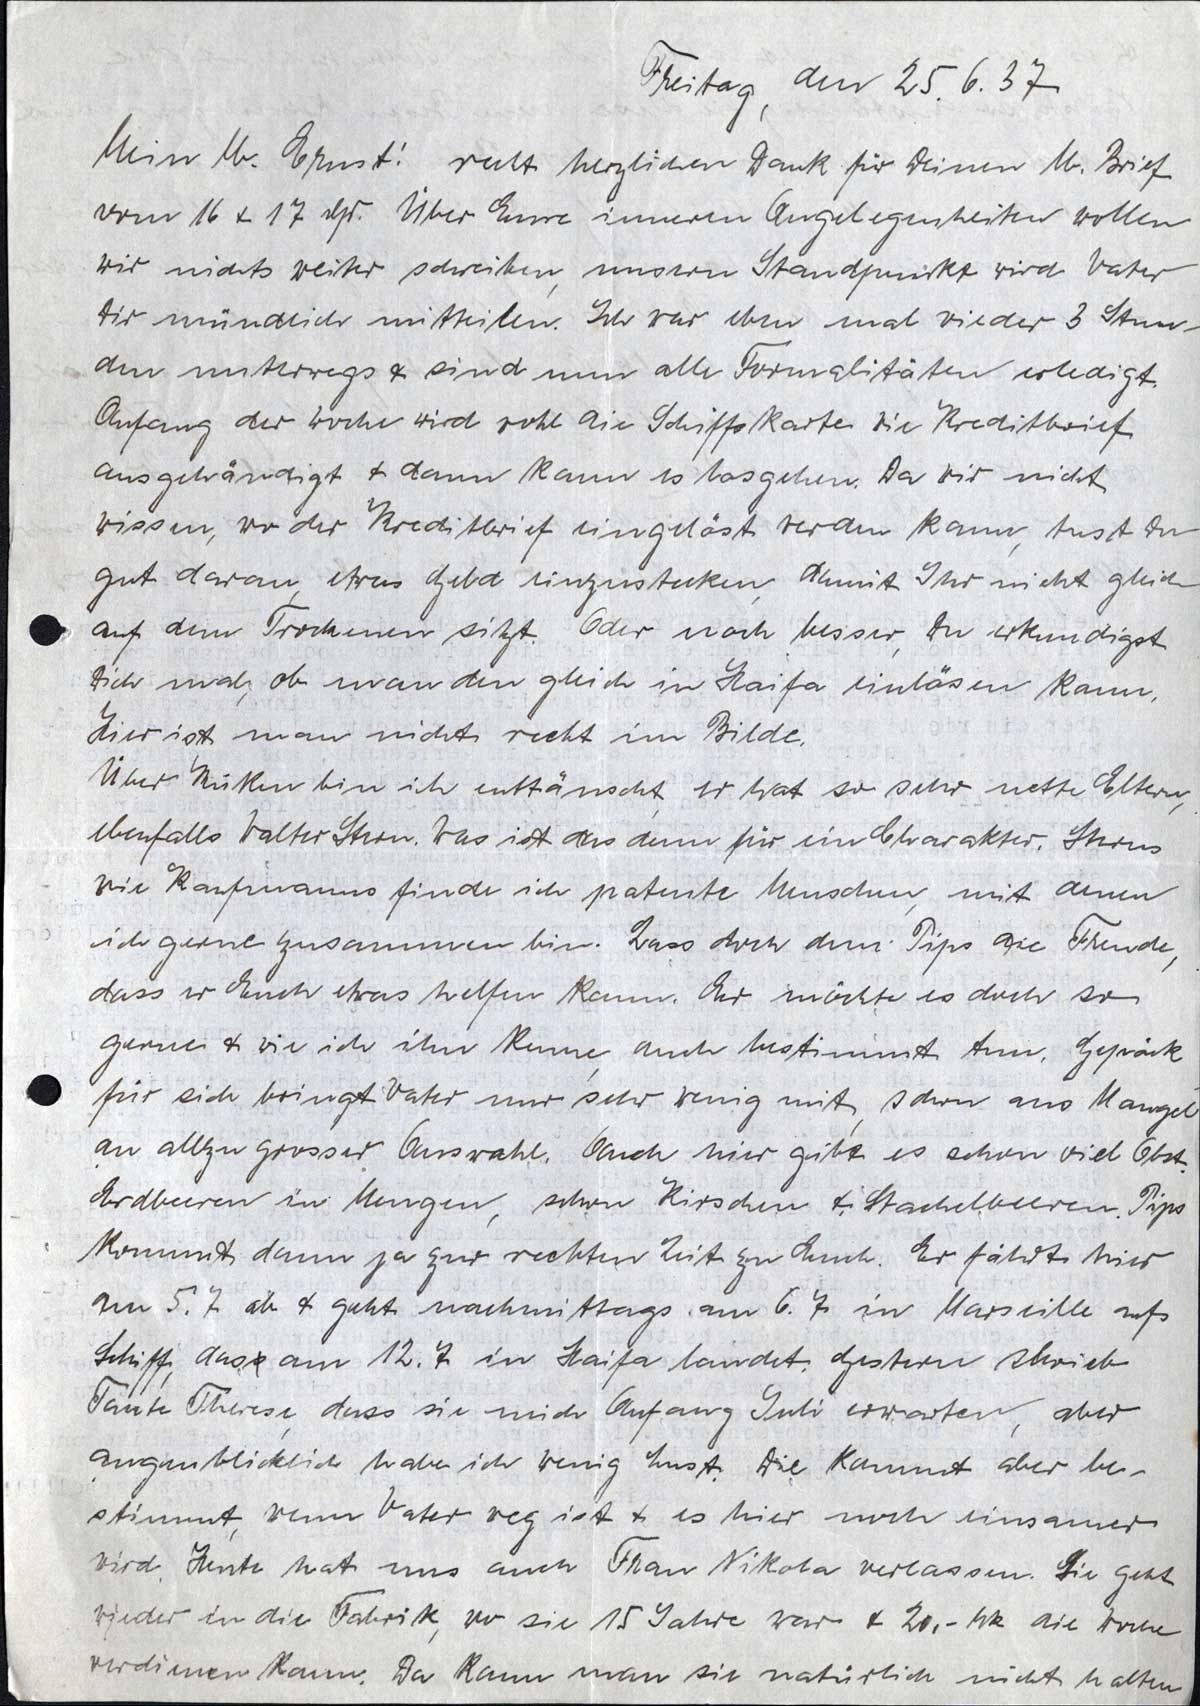 Freitag, den 25.6.37
Mein lb. Ernst! recht herzlichen Dank für Deinen lb. Brief
vom 16 & 17 ds. Über Eure inneren Angelegenheiten wollen
wir nichts weiter schreiben, unsern Standpunkt wird Vater
Dir mündlich mitteilen. Ich war eben mal wieder 3 Stun-
den unterwegs & sind nun alle Formalitäten erledigt.
Anfang der Woche wird wohl die Schiffskarte wie Kreditbrief
ausgehändigt & dann kann es losgehen. Da wir nicht
wissen, wo der Kreditbrief eingelöst werden kann, tust Du
gut daran, etwas Geld einzustecken, damit Ihr nicht gleich
auf dem Trockenen sitzt. Oder noch besser, Du erkundigst
Dich mal, ob man den gleich in Haifa einlösen kann.
Hier ist man nicht recht im Bilde.
Über Küken bin ich enttäuscht, er hat so sehr nette Eltern,
ebenfalls Walter Stern. Was ist das denn für ein Charakter. Sterns
wie Kaufmanns finde ich patente Menschen, mit denen
ich gerne zusammen bin. Lass doch dem Pips die Freude,
dass er Euch etwas helfen kann. Er möchte es doch so
gerne & wie ich ihn kenne, auch bestimmt tun. Gepäck
für sich bringt Vater nur sehr wenig mit, schon aus Mangel
an allzu grosser Auswahl. Auch hier gibt es schon viel Obst.
Erdbeeren in Mengen, schon Kirschen & Stachelbeeren. Pips
kommt dann ja zur rechten Zeit zu Euch. Er fährt hier
am 5.7 ab & geht nachmittags am 6.7 in Marseille aufs
Schiff, dass am 12.7 in Haifa landet. Gestern schrieb
Tante Therese, dass sie mich Anfang Juli erwarten, aber
augenblicklich habe ich wenig Lust. Die kommt aber be-
stimmt, wenn Vater weg ist & es hier noch einsamer
wird. Heute hat uns auch Frau Nikola verlassen. Sie geht
wieder in die Fabrik, wo sie 15 Jahre war & 20,- Mk die Woche
verdienen kann. Da kann man sie natürlich nicht halten